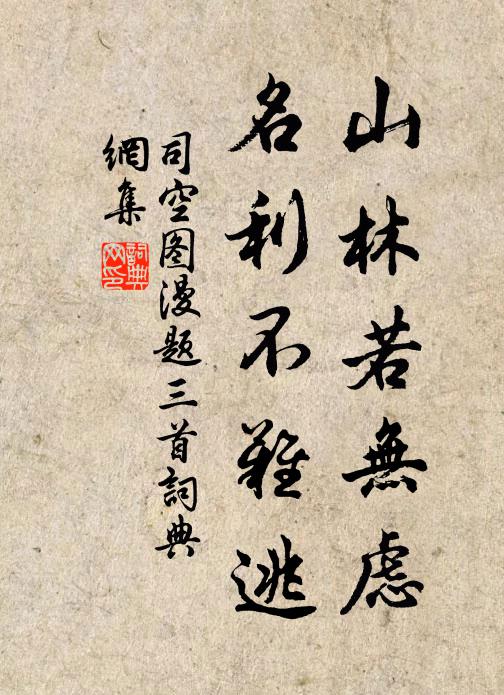 山林若無慮
名利不難逃
司空图漫题三首詞典
網集
詞典
网印